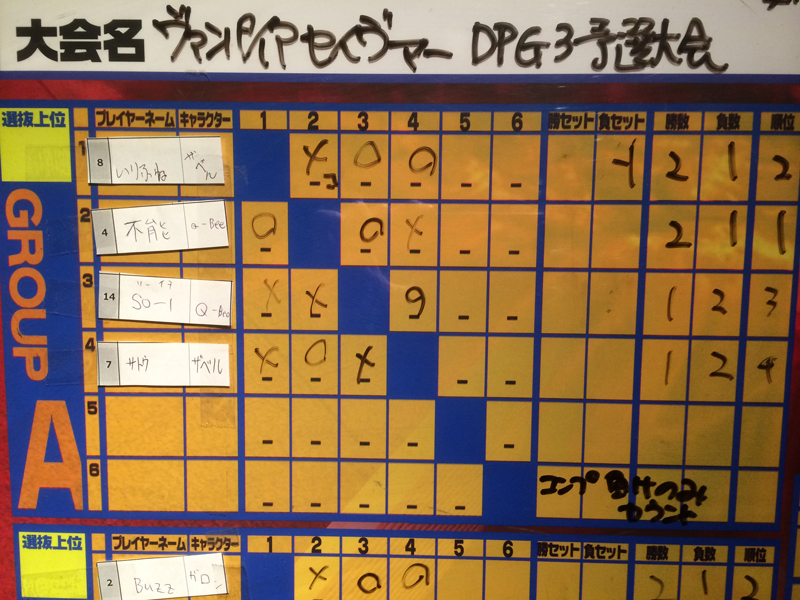 大会名 ヴァンパイアセイヴァー DPG3予選大会
選抜上位 プレイヤーネーム キャラクター 1 2 3 4 5 6 勝セット 負セット 勝数 負数 順位
GROUP A
1 8 いりふね ザベル x -3 o - o - - - -1 2 1 2
2 4 不能 Q-Bee o - o - x - - - 2 1 1
3 14 SO-1 Q-Bee x - x - 9 - - - 1 2 3
4 7 サトウ ザベル x - o - x - - - 1 2 4
5 - - - - -
6 - - - - -
カウント
選抜上位 プレイヤーネーム キャラクター 1 2 3 4 5 6 勝セット 負セット 勝数 負数 順位
2 Buzz ガロン x o o 2 1 2